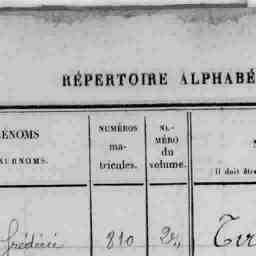 RÉPERTOIRE ALPHABÉ
ÉNOMS
SURNOMS.
NUMÉROS
ma-
tricules.
NU-
MÉRO
du
volume.
Il doit être
Frédéric 810 2e